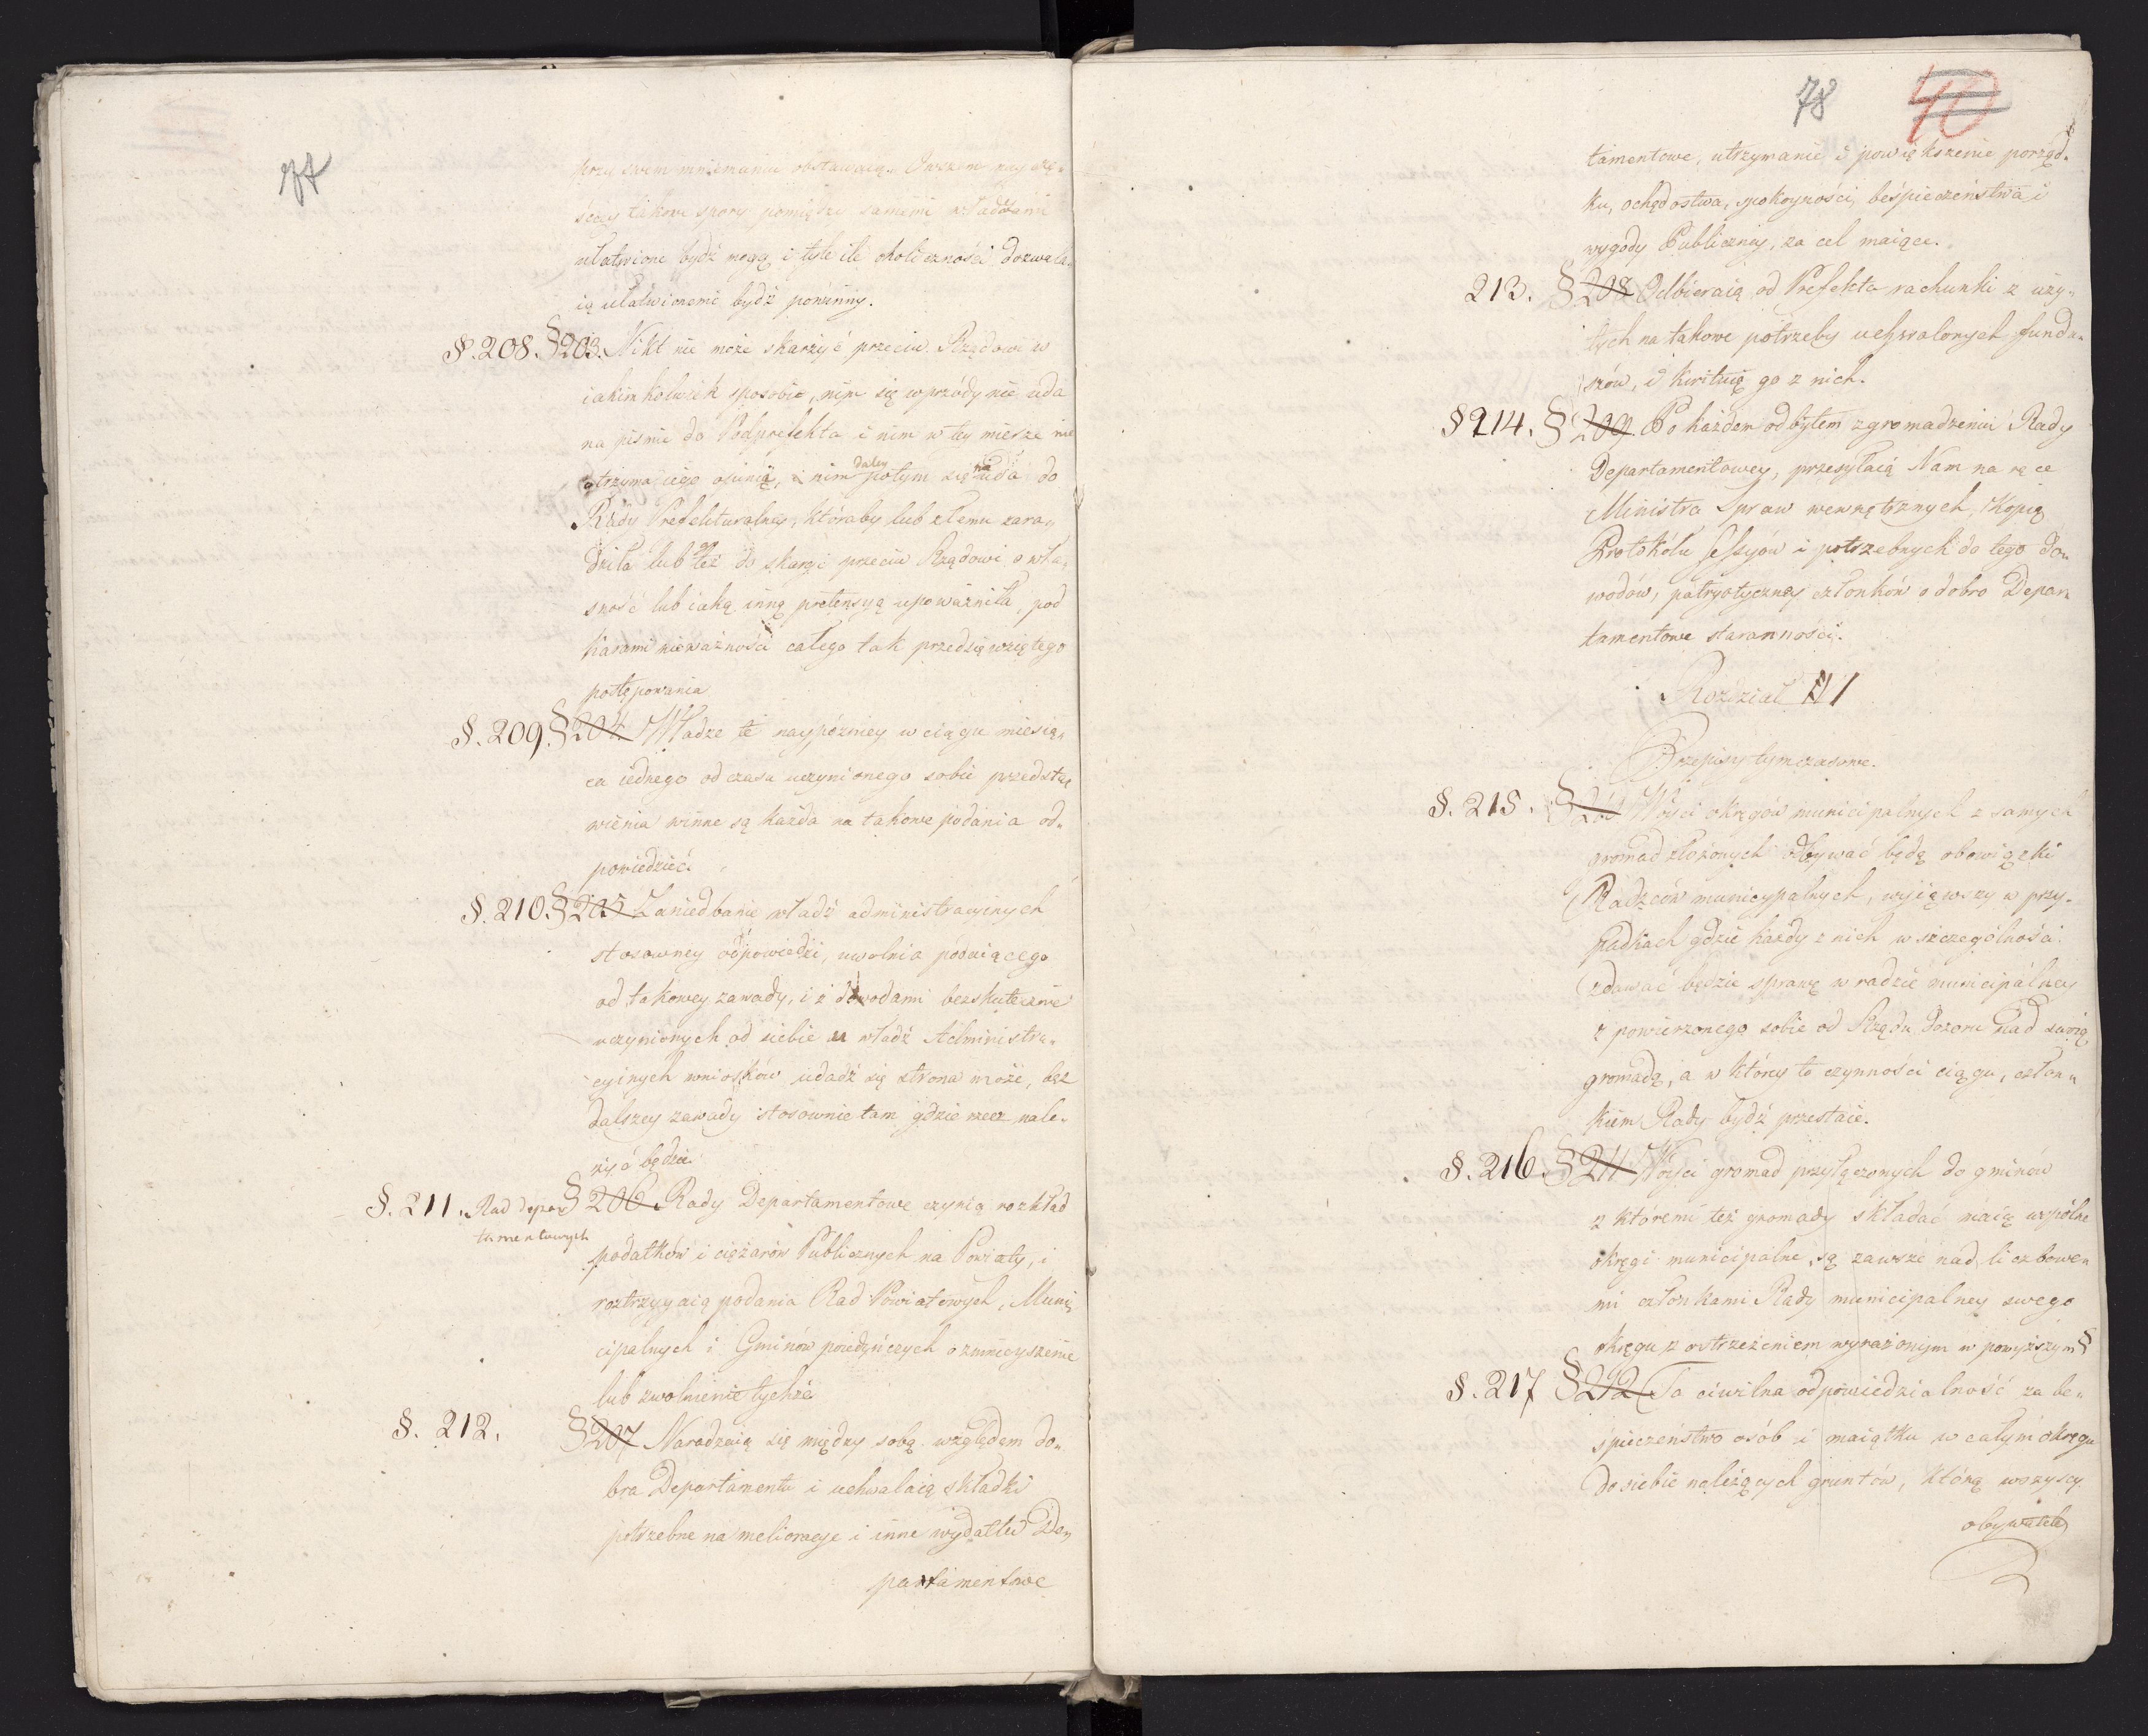 77
przy swem mniemaniu obstawaią. Owszem nay czę„
ściey takowe spory pomiędzy samemi władzami
ułatwione bydź mogą i tyle ile okoliczności dozwala„
ią ułatwionemi bydź powinny.
§. 208. §203. Nikt nie może skarżyć przeciw Rządowi w
iakimkolwiek sposobie, nim się wprzódy nie uda
na pismie do Podprefekta i nim w tey mierze nie
otrzyma iego opinią, i nim daley potym się nie uda do
Rady Prefekturalney, któraby lub złemu zara„
dziła lub też do skargi przeciw Rządowi o wła„
sność lub iaką inną pretensyą upoważniła, pod
karami nieważności całego tak przedsięwziętego
postępowania
§. 209. §204. Władze te naypóźniey w ciągu miesią„
ca iednego od czasu uczynionego sobie przedsta„
wienia winne są każda na takowe podania od„
powiedzieć.
§. 210. §205 Zaniedbanie władz administracyinych
stosowney odpowiedzi, uwolnia podaiącego
od takowey zawady, i z dowodami bezskutecznie
uczynionych od siebie u władz Administra„
cyinych wniosków udadź się strona może, bez
dalszey zawady stosownie tam gdzie rzecz nale„
żyć będzie.
§. 211. Rad Depar„
tamentowych
§206. Rady Departamentowe czynią rozkład
podatków i ciężarów Publicznych na Powiaty, i
roztrzygaią podania Rad Powiatowych, Muni„
cipalnych i Gminów poiedyńczych o zmnieyszenie
lub zwolnienie tychże
§. 212. §207 Naradzaią się między sobą względem do„
bra Departamentu i uchwalaią składki
potrzebne na melioracye i inne wydatki De„
partamentowe
78 40
tamentowe, utrzymanie i powiększenie porząd„
ku, ochędostwa, spokoyności, beśpieczeństwa i
wygody Publiczney, za cel maiące.
213. §208 Odbieraią od Prefekta rachunki z uży„
tych na takowe potrzeby uchwalonych fundu„
szów, i kwituią go z nich.
§214. §209 Po każdem odbytem zgromadzeniu Rady
Departamentowey, przesyłaią Nam na ręce
Ministra Spraw wewnętrznych, Kopią
Protokółu Sessyów i potrzebnych do tego do„
wodów, patryotyczney członków o dobro Depar„
tamentowe staranności.
Rozdział III
Przepisy tymczasowe.
§. 215. §210 Wóyci okręgów municipalnych z samych
gromad złożonych odbywać będą obowiązki
Radzców municypalnych, wyiąwszy w przy„
padkach gdzie każdy z nich w szczególności
zdawać będzie sprawę w radzie municipalney
z powierzonego sobie od Rządu dozoru nad swoią
gromadą, a w którey to czynności ciągu, człon„
kiem Rady bydź przestaie.
§. 216. §211 Wóyci gromad przyłączonych do gminów
z któremi też gromady składać maią wspólne
okręgi municipalne, są zawsze nad liczbowe„
mi członkami Rady municipalney swego
okręgu z ostrzeżeniem wyrażonym w powyższym §
§. 217 §212 Ta ciwilna odpowiedzialność za be„
śpieczeństwo osób i maiątku w całym okręgu
do siebie należących gruntów, którą wszyscy
obywatele